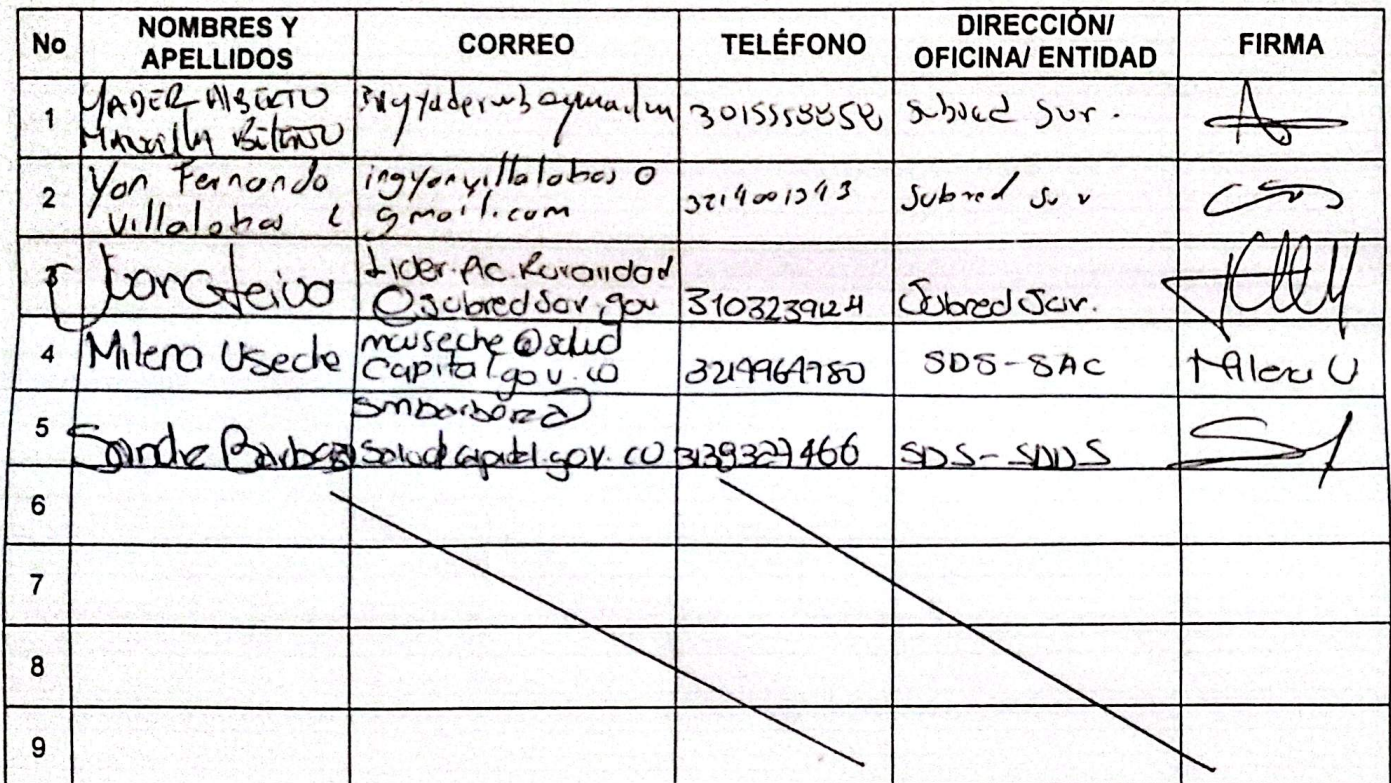 No NOMBRES Y APELLIDOS CORREO TELÉFONO DIRECCIÓN/ OFICINA/ ENTIDAD FIRMA
1 YADER AlBERTO
301555
Sur.
2 Yon Fernando ingyonvillalobos @
Villalobos L gmail.com 3214001343 Subred Sur
3 Lider.Ac.Ruralidad
@subredsur.gov 3103239124 Subred Sur.
4 Milena Useche museche@salud
Capital.gov.co 3219964780 SDS-SAC Milena U
5 smbarbosa@
Sandra Barbosa saludcapital.gov.co 3139327466 SDS-SDDS
6
7
8
9